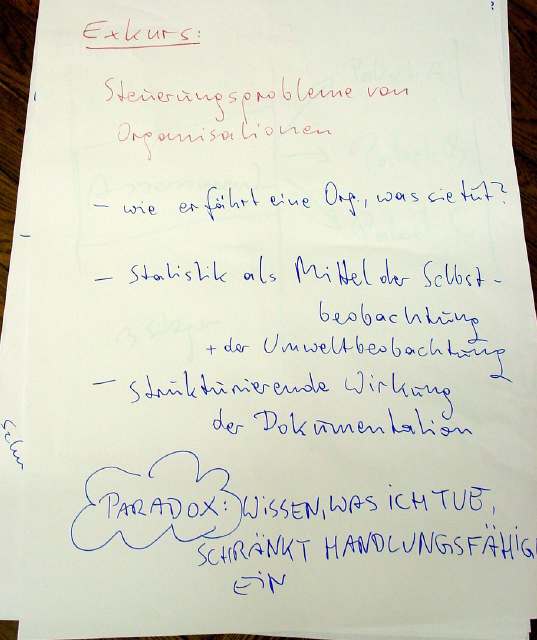 Exkurs:
Steuerungsprobleme von
Organisationen
– wie erfährt eine Org., was sie tut?
– Statistik als Mittel der Selbst-
beobachtung
+ der Umweltbeobachtung
– strukturierende Wirkung
der Dokumentation
PARADOX: WISSEN, WAS ICH TUE,
SCHRÄNKT HANDLUNGSFÄHIG
EIN